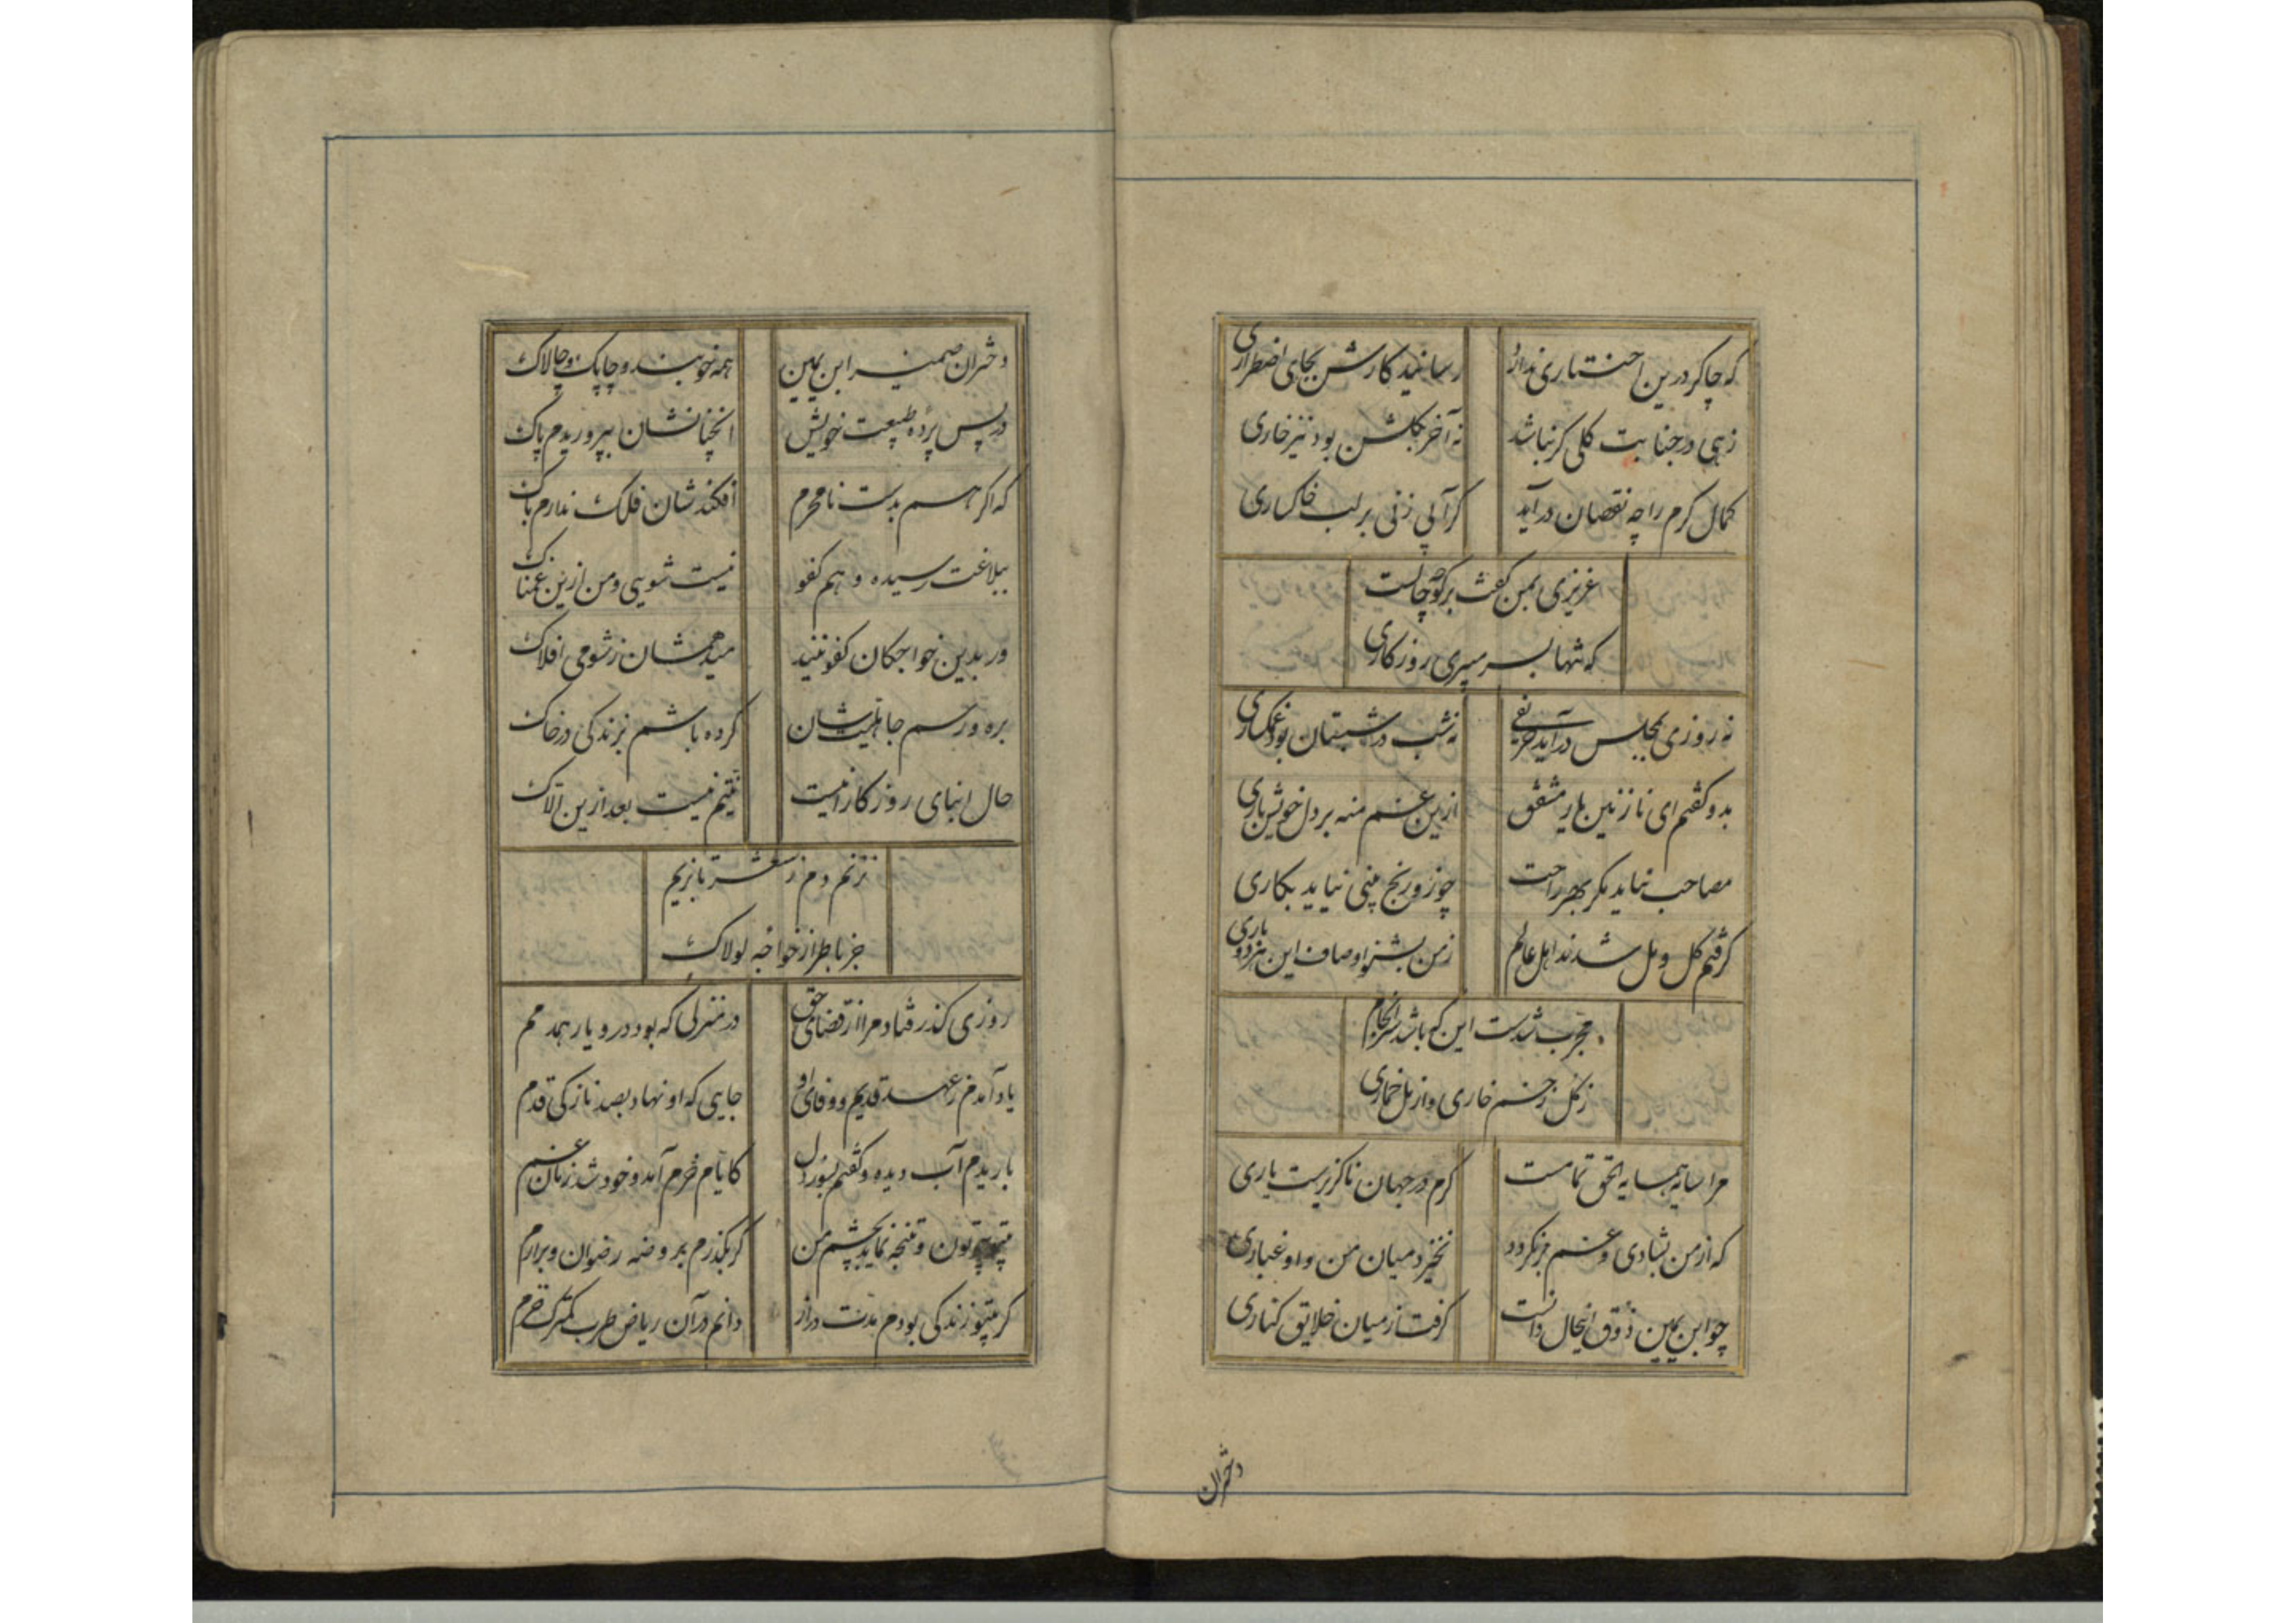 که چاکر درین اختیاری ندارد رسانید کارش بجای اضطراری
زهی در جنابت گلی گر نباشد نه آخر بگلشن بود نیز خاری
کمال کرم را چه نقصان درآید گر آبی زنی بر لب خاکساری
عزیزی بمن گفت برگو چه حالست
که تنها بسر میبری روزگاری
نه روزی بمجلس درآید حریفی نه شب در شبستان بود غمگساری
بدو گفتم ای نازنین یار مشفق ازین غم منه بر دل خویش باری
مصاحب نباید مگر بهر راحت چو زو رنج بینی نیاید بکاری
گرفتم گل و مل شدند اهل عالم ز من بشنو اوصاف این هر دو باری
مجرب شدست این که باشد سرانجام
ز گل زخم خاری و از مل خماری
مرا سایه همسایه الحق تمامست گرم در جهان ناگزیرست یاری
که از من بشادی و غم برنگردد نخیزد میان من و او غباری
چو ابن یمین ذوق اینحال دانست گرفت از میان خلایق کناری
دختران
دختران ضمیر ابن یمین همه خوبند و چابک و چالاک
در پس پرده طبیعت خویش انچنانشان بپروریدم پاک
که اگر هم بدست نامحرم افکندشان فلک ندارم باک
ببلاغت رسیده و هم کفو نیست شویی و من ازین غمناک
ور بدین خواجگان کفو نیند میدهمشان ز شومی افلاک
بره و رسم جاهلیتشان کرده باشم بزندگی در خاک
حال ابنای روزگار اینست نیتم نیست بعد ازین الاک
نزنم دم ز شعر تا بزیم
جز باطرا از خواجه لولاک
روزی گذر فتاد مرا از قضای حق در منزلی که بود درو یار همدمم
یاد آمدم ز عهد قدیم و وفای او جایی که او نهاد بصد نازکی قدم
باریدم آب دیده و گفتم بسوز دل کایام خرم آمد و خود شد زمان غم
بیتو چو تون و گنجه نماید بچشم من گر بگذرم بروضه رضوان و برارم
گر بیتو زندگی بودم مدت دراز دانم در آن ریاض طرب کمترک خرم